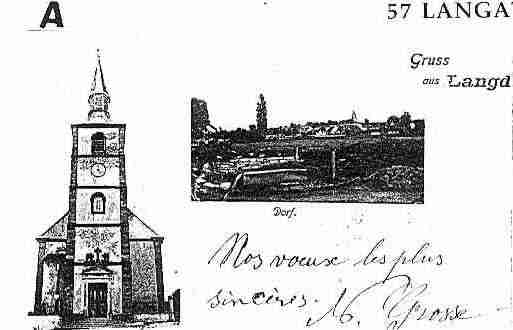 A
57 LANGA
Gruss
aus Langd
Dorf.
Nos voeux les plus
sincères. M. Grosse